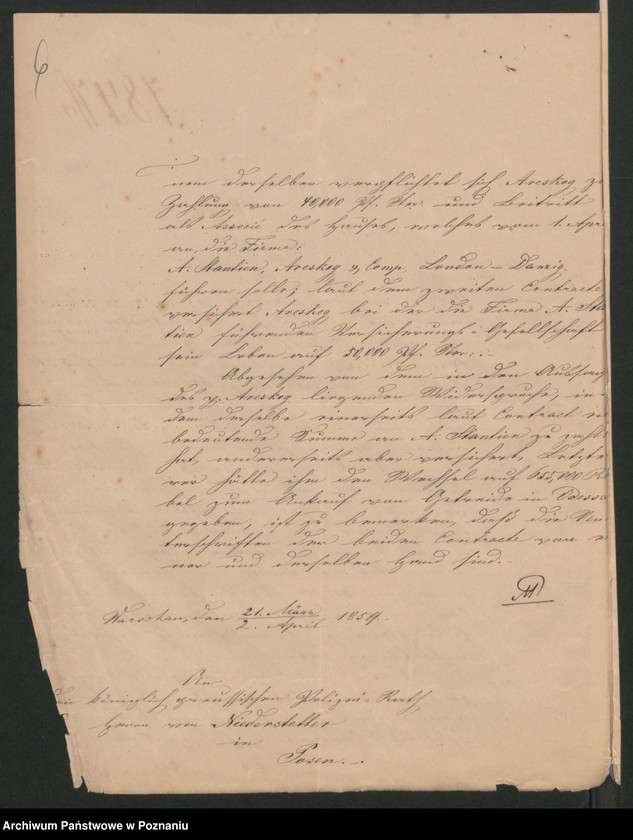 6
nem derselben verpflichtet sich Areskog z
Zahlung von 40,000 Pf. Ster. und Beitritt
als Associé des Hauses, welches vom 1. Apr
an, die Firma:
A. Stantien, Areskog & Comp. London – Danzig.
führen solle; laut dem zweiten Contracte
versichert Areskog bei der die Firma A. Sta
tien führenden Versicherungs-Gesellschaft
sein Leben auf 50,000 Pf. Ster.
Abgesehen von dem in den Aussag
des p. Areskog liegenden Widerspruche, in
dem derselbe einerseits laut Contract
bedeutende Summe an A. Stantien zu zahl
hat, andererseits aber versichert, Letzte
rer hätte ihm den Wechsel auf 655,000 R
bel zum Ankauf von Getreide in Odessa
gegeben, ist zu bemerken, daß die Un
terschriften der beiden Contracte von e
ner und derselben Hand sind.
Warschau, den 21. März / 2. April 1859.
An
den königlich preussischen Polizei-Rath
Herrn von Niederstetter
in
Posen.
Archiwum Państwowe w Poznaniu